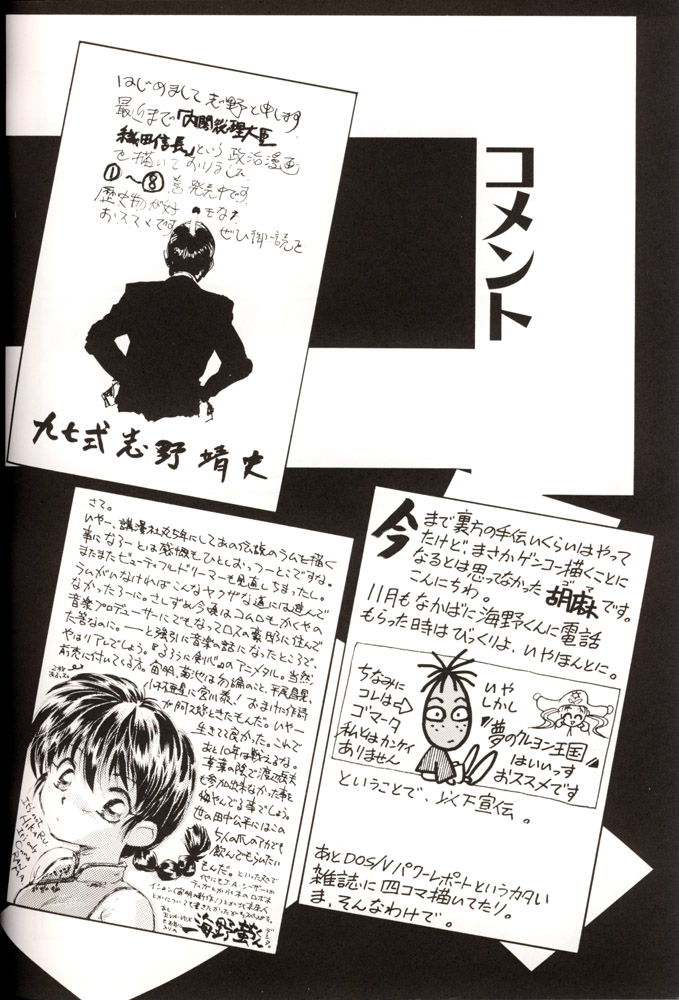 コメント
はじめまして志野と申します
最近まで「内閣総理大臣
織田信長」という政治漫画
を描いておりました
①〜⑧巻発売中です
歴史物が好きな方
おススメです ぜひ御一読を
九七式 志野靖史
今まで裏方の手伝いくらいはやって
たけど、まさかゲンコー描くことに
なるとは思ってなかった胡麻です。
ゴマ
こんにちわ。
11月もなかばに海野くんに電話
もらった時はびっくりよ、いやほんとに。
いや
しかし
"夢のクレヨン王国"
はいいっす
おススメです
ちなみに
コレは⇨
ゴマータ
私とはカンケイ
ありません
ということで、以下宣伝。
あとDOS/Vパワーレポートというカタい
雑誌に四コマ描いてたり。
ま、そんなわけで。
さて。
いやー、講漫社史5年にしてあの伝説のラムを描く
事になろーとは感慨もひとしおっつーとこですな。
またまたビューティフルドリーマーも見直しちまったし。
ラムがいなければこんなヤクザな道には進んで
なかったろーに。さしずめ今頃はコムロもかくやの
音楽プロデューサーにでもなってロスの豪邸に住んで
た筈なのに。――と強引に音楽の話になったところで、
やはりアレでしょう。『るろうに剣心』のアニメタル。当然
前売に付いてくる方。
生きてて良かった。これで
あと10年は戦えるな。
海野螢